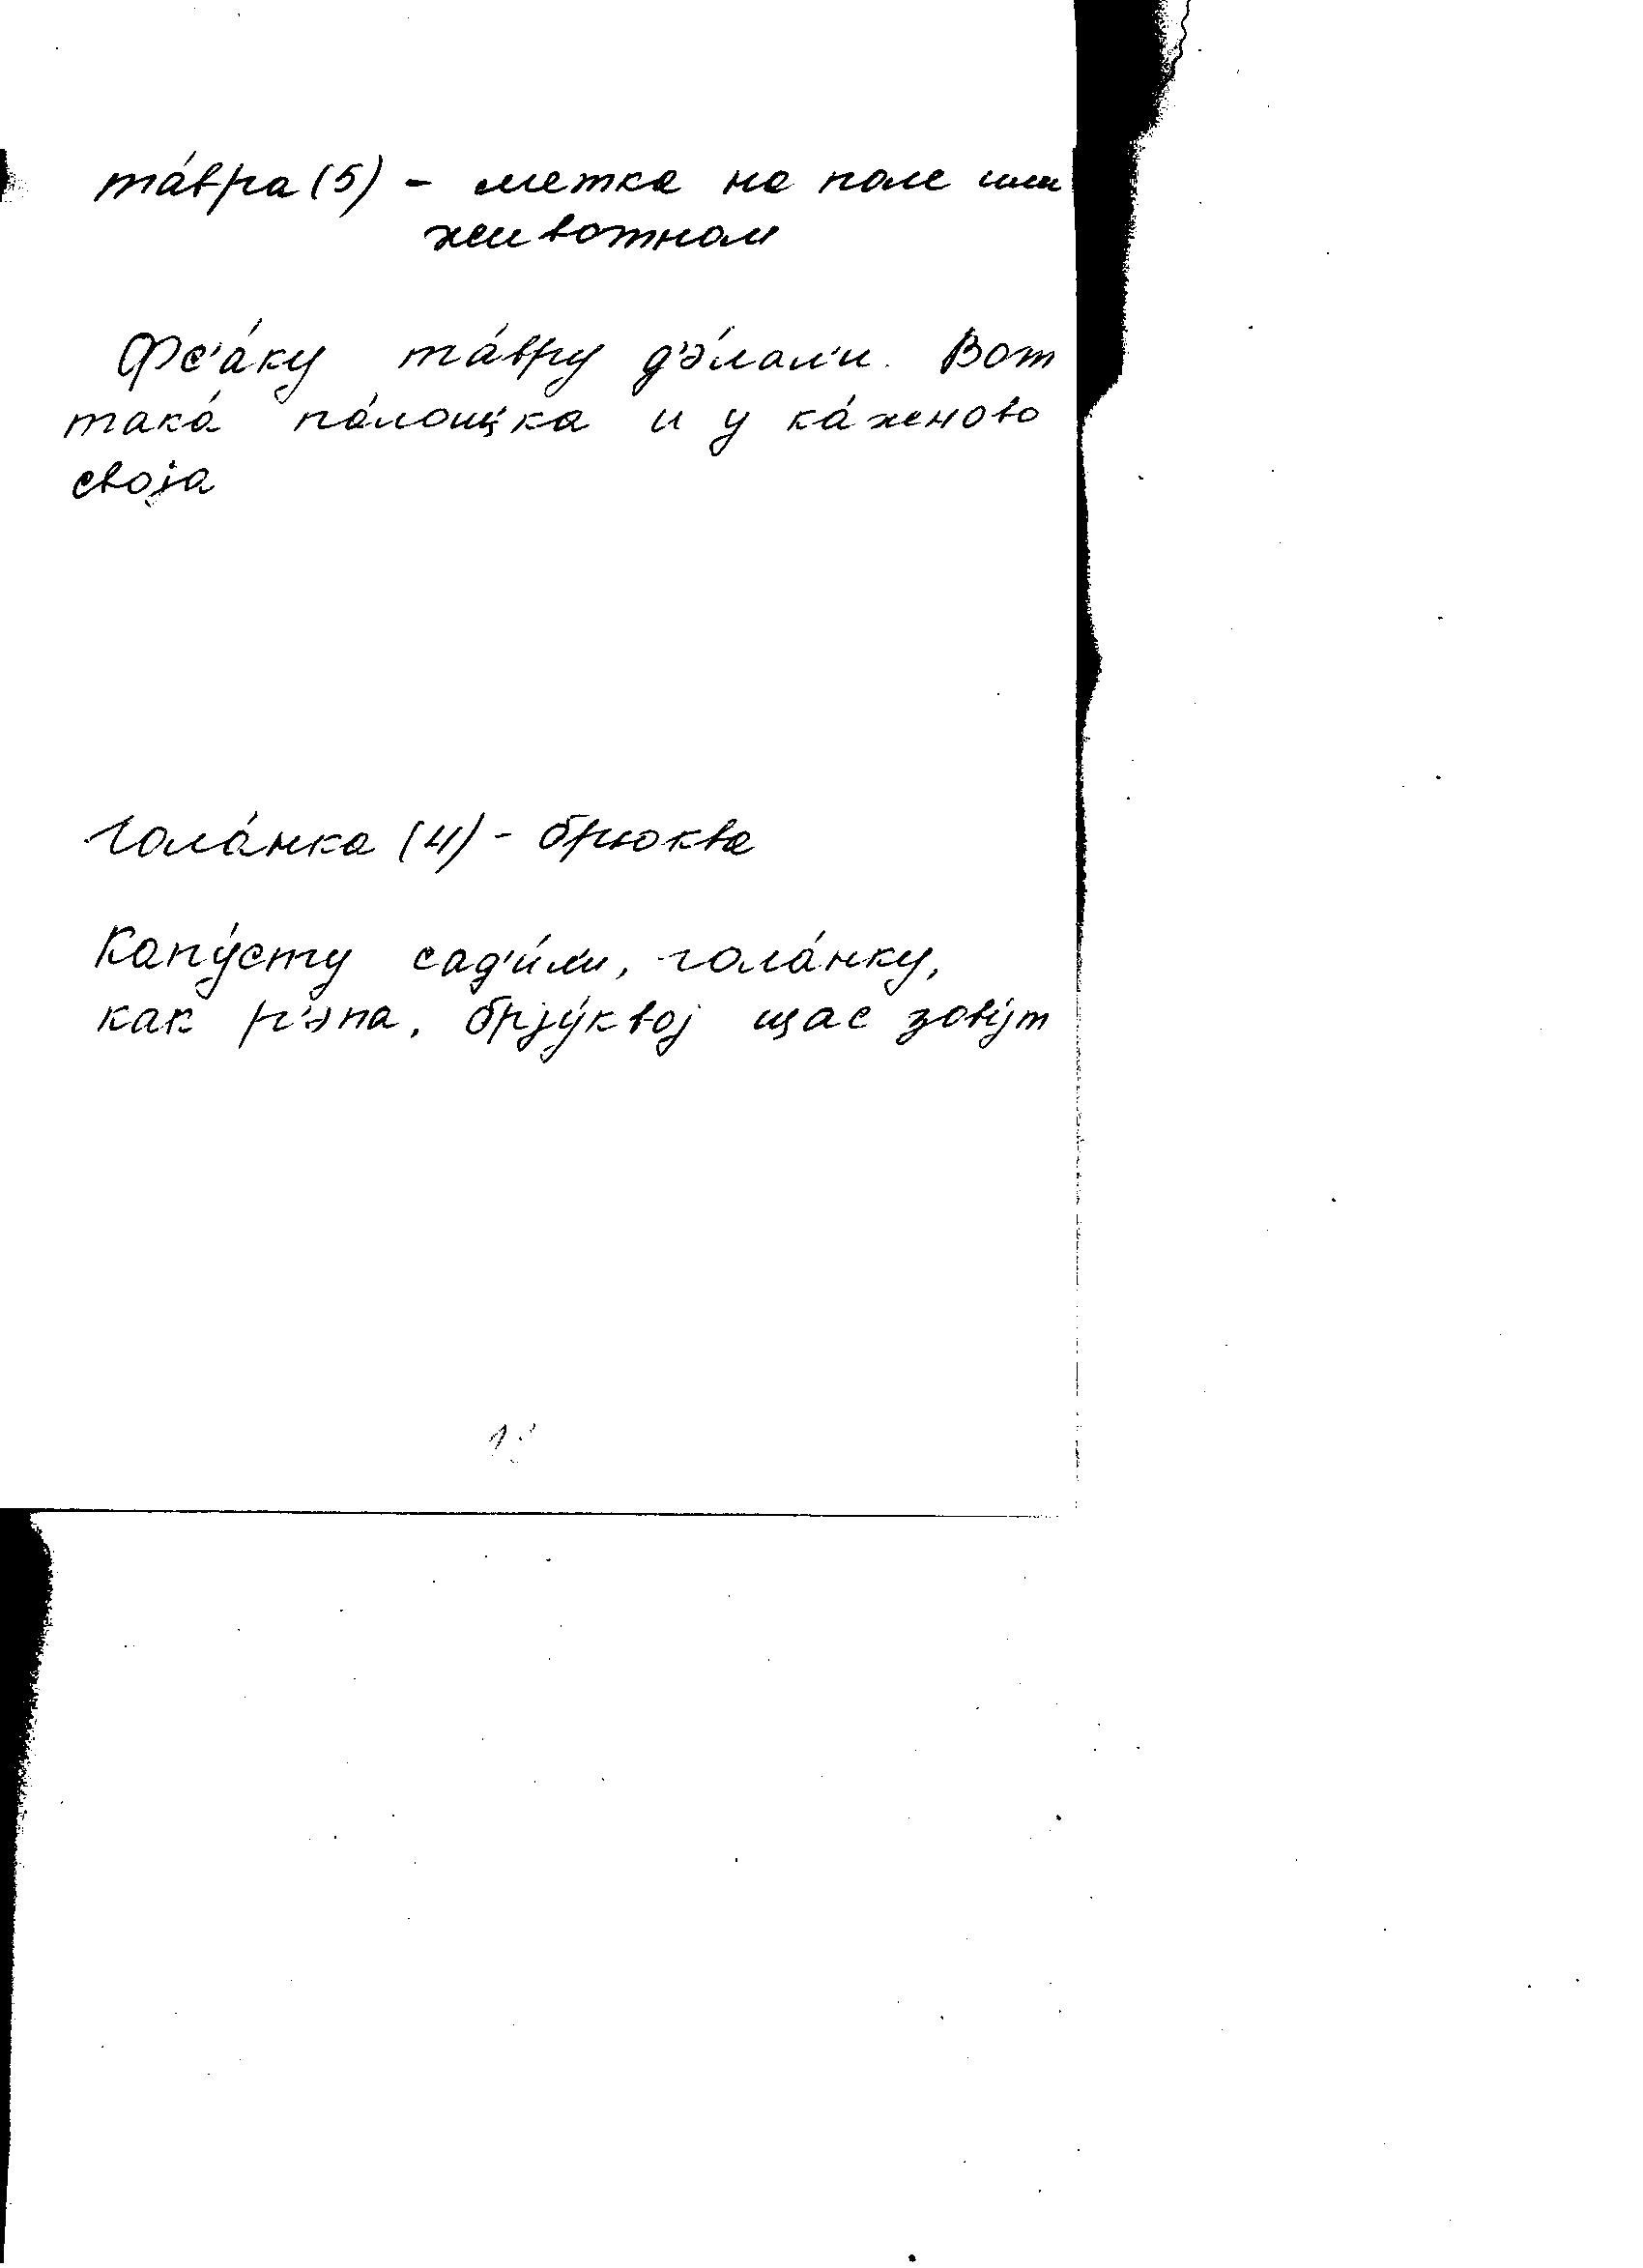 та́вра (5) - метка на поле или
животном
Фс'а́ку та́вру д'э́лал'и. Вот
така́ па́лощка и у ка́жново
своjа
Гола́нка (4) - брюква
Капу́сту сад'и́л'и, гола́нку,
как р'эпа, брjу́квоj щас зову́т